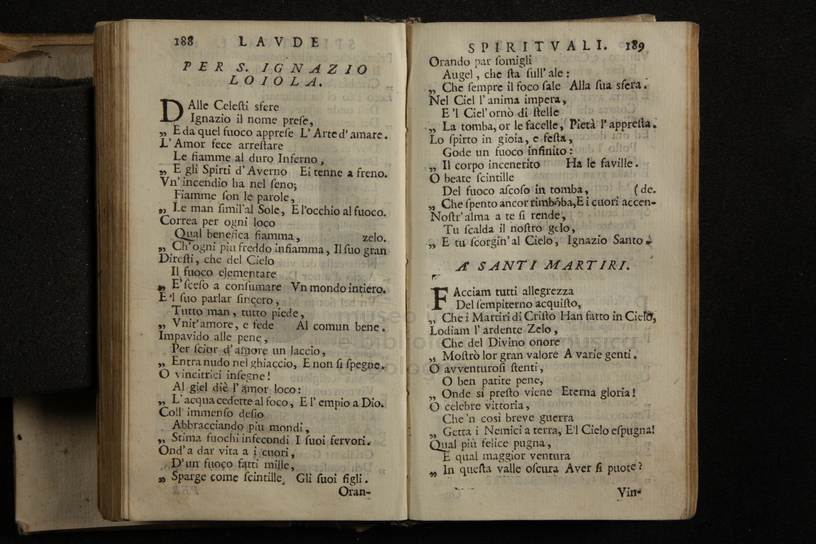 188 LAVDE
PER S. IGNAZIO
LOIOLA.
DAlle Celeſti sfere
Ignazio il nome preſe,
„ E da quel fuoco appreſe L'Arte d'amare.
L'Amor fece arreſtare
Le fiamme al duro Inferno,
„ E gli Spirti d'Averno Ei tenne a freno.
Vn'incendio ha nel ſeno;
Fiamme ſon le parole,
„ Le man ſimil'al Sole, E l'occhio al fuoco.
Correa per ogni loco
Qual benefica fiamma, zelo.
„ Ch'ogni piu freddo infiamma, Il ſuo gran
Direſti, che del Cielo
Il fuoco elementare
„ E' ſceſo a conſumare Vn mondo intiero.
E'l ſuo parlar ſincero,
Tutto man, tutto piede,
„ Vnit'amore, e fede Al comun bene.
Impavido alle pene,
Per ſcior d'amore un laccio,
„ Entra nudo nel ghiaccio, E non ſi ſpegne.
O vincitrici inſegne!
Al giel diè l'amor loco:
„ L'acqua cedette al foco, E l'empio a Dio.
Coll' immenſo deſio
Abbracciando piu mondi,
„ Stima fuochi infecondi I ſuoi fervori.
Ond'a dar vita a i cuori,
D'un fuoco fatti mille,
„ Sparge come ſcintille, Gli ſuoi figli.
Oran-
SPIRITVALI. 189
Orando par ſomigli
Augel, che ſta ſull'ale:
„ Che ſempre il foco ſale Alla ſua sfera.
Nel Ciel l'anima impera,
E'l Ciel'ornò di ſtelle
„ La tomba, or le facelle, Pietà l'appreſta.
Lo ſpirto in gioia, e feſta,
Gode un fuoco infinito:
„ Il corpo incenerito Ha le faville.
O beate ſcintille
Del fuoco aſcoſo in tomba, (de.
„ Che ſpento ancor rimbõba, E i cuori accen-
Noſtr'alma a te ſi rende,
Tu ſcalda il noſtro gelo,
„ E tu ſcorgin'al Cielo, Ignazio Santo.
A' SANTI MARTIRI.
FAcciam tutti allegrezza
Del ſempiterno acquiſto,
„ Che i Martiri di Criſto Han fatto in Cielo,
Lodiam l'ardente Zelo,
Che del Divino onore
„ Moſtrò lor gran valore A varie genti.
O avventuroſi ſtenti,
O ben patite pene,
„ Onde sì preſto viene Eterna gloria!
O celebre vittoria,
Che'n così breve guerra
„ Getta i Nemici a terra, E'l Cielo eſpugna!
Qual più felice pugna,
E qual maggior ventura
„ In queſta valle oſcura Aver ſi puote?
Vin-